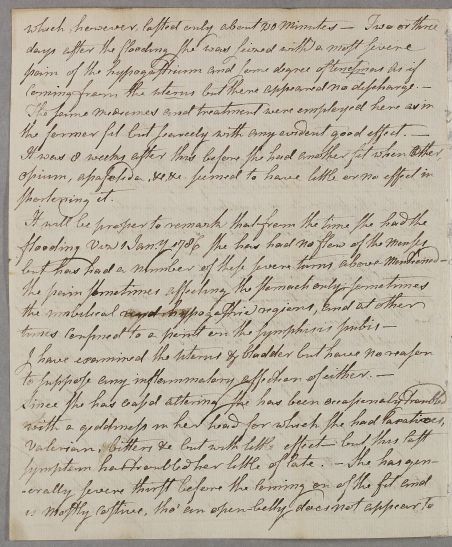 which however lasted only about 20 minutes — Two or three
days after the flooding she was seized with a most severe
pain of the hypogastrium and some degree of tenesmus as if
coming from the uterus but there appeared no discharge. —
The same medicines and treatment were employed here as in
the former fit but scarcely with any evident good effect. —
It was 8 weeks after this before she had another fit when Ether
opium, assafoetida &c &c. seemed to have little or no effect in
shortening it.
It will be proper to remark that from the time she had the
flooding Viz 1 Jany 1786 she has had no flow of the Menses
but has had a number of these severe turns above mentioned —
the pain sometimes affecting the stomach only, sometimes
the umbilical and hypogastric regions, and at other
times confined to a point on the symphisis pubis —
I have examined the uterus & bladder but have no reason
to suppose any inflammatory affection of either. —
Since she has ceas'd altering she has been occasionally troubled
with a giddiness in her head for which she had Laxatives,
Valerian, bitters &c but with little effect but this last
symptom has troubled her little of late. — She has gen-
-erally severe thirst before the coming on of the fit and
is mostly costive, tho' an open belly does not appear to